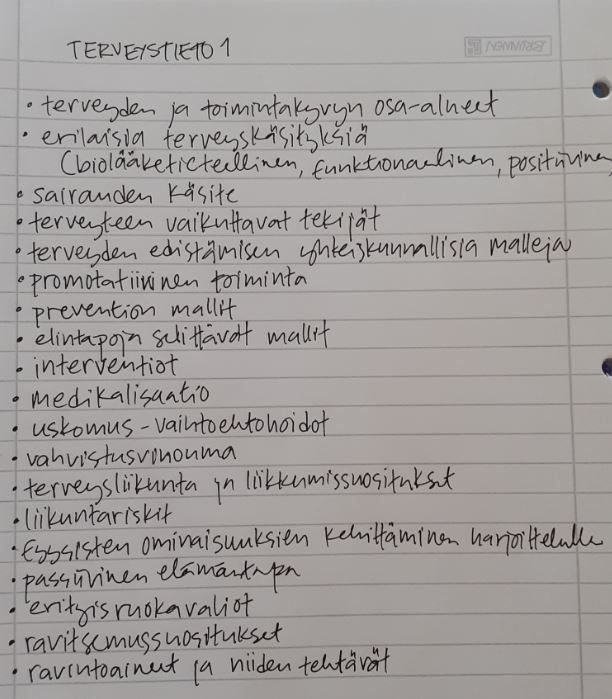 TERVEYSTIETO 1
• terveyden ja toimintakyvyn osa-alueet
• erilaisia terveyskäsityksiä
(biolääketieteellinen, funktionaalinen, positiivinen,
• sairauden käsite
• terveyteen vaikuttavat tekijät
• terveyden edistämisen yhteiskunnallisia malleja
• promotatiivinen toiminta
• prevention mallit
• elintapoja selittävät mallit
• interventiot
• medikalisaatio
• uskomus-vaihtoehtohoidot
• vahvistusvinouma
• terveysliikunta ja liikkumissuositukset
• liikuntariskit
• fyysisten ominaisuuksien kehittäminen harjoittelulla
• passiivinen elämäntapa
• erityisruokavaliot
• ravitsemussuositukset
• ravintoaineet ja niiden tehtävät